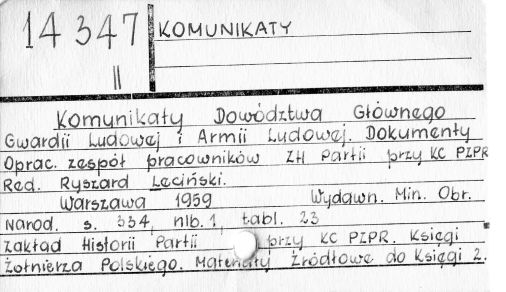 14347 KOMUNIKATY
II
Komunikaty Dowództwa Głównego
Gwardii Ludowej i Armii Ludowej. Dokumenty
Oprac. zespół pracowników ZH Partii przy KC PZPR
Red. Ryszard Leciński.
Warszawa 1959 Wydawn. Min. Obr.
Narod. s. 334, nlb. 1, tabl. 23
Zakład Historii Partii przy KC PZPR. Księgi
Żołnierza Polskiego. Materiały źródłowe do Księgi 2.